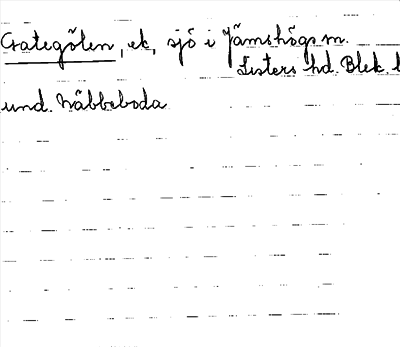 Crategölen, ek, sjö i Jämshögs sn.
Listers hd. Blek. l
und. Näbbeboda